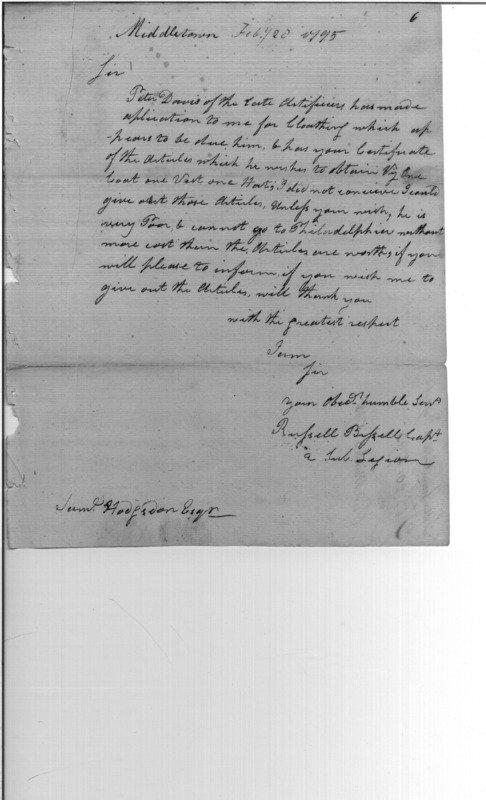 6
Middletown Feby 28 1795
Sir
Peter Davis of the late Artificiers has made
aplication to me for Cloathing which ap
-pears to be due him, & has your Certificate
of the Articles which he wishes to obtain Viz One
Coat one Vest one Hat; I did not concieve I could
give out those Articles, Unless you wish, he is
very Poor, & cannot go to Philadelphia without
more cost then the Articles are worth; if you
will please to inform, if you wish me to
give out the Articles, will thank you
with the greatest respect
I am
Sir
your Obedt humble Servt
Russell Bissell Capt
2 Sub Legion
Saml Hodgsdon Esqr